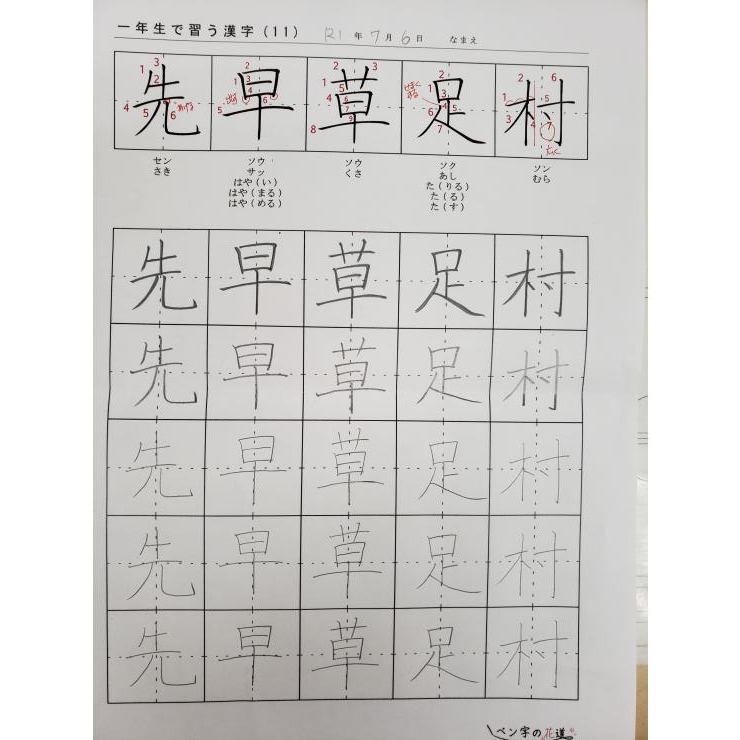 一年生で習う漢字(11) R1 年 7 月 6 日 なまえ
先 早 草 足 村
セン ソウ ソウ ソク ソン
さき サッ くさ あし むら
はや(い) た(りる)
はや(まる) た(る)
はや(める) た(す)
先 早 草 足 村
先 早 草 足 村
先 早 草 足 村
先 早 草 足 村
先 早 草 足 村
ペン字の花道